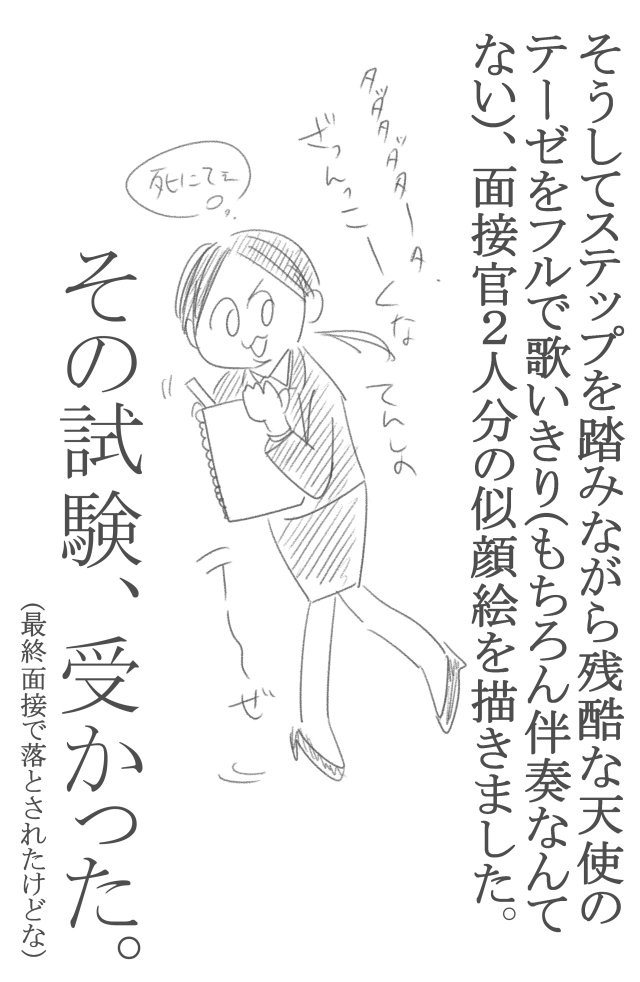 そうしてステップを踏みながら残酷な天使の
テーゼをフルで歌いきり(もちろん伴奏なんて
ない)、面接官２人分の似顔絵を描きました。
ダッダッダッダーダ.
ざんっこーくな
てんしの
テーーぜ
死にてぇ
その試験、受かった。
(最終面接で落とされたけどな)